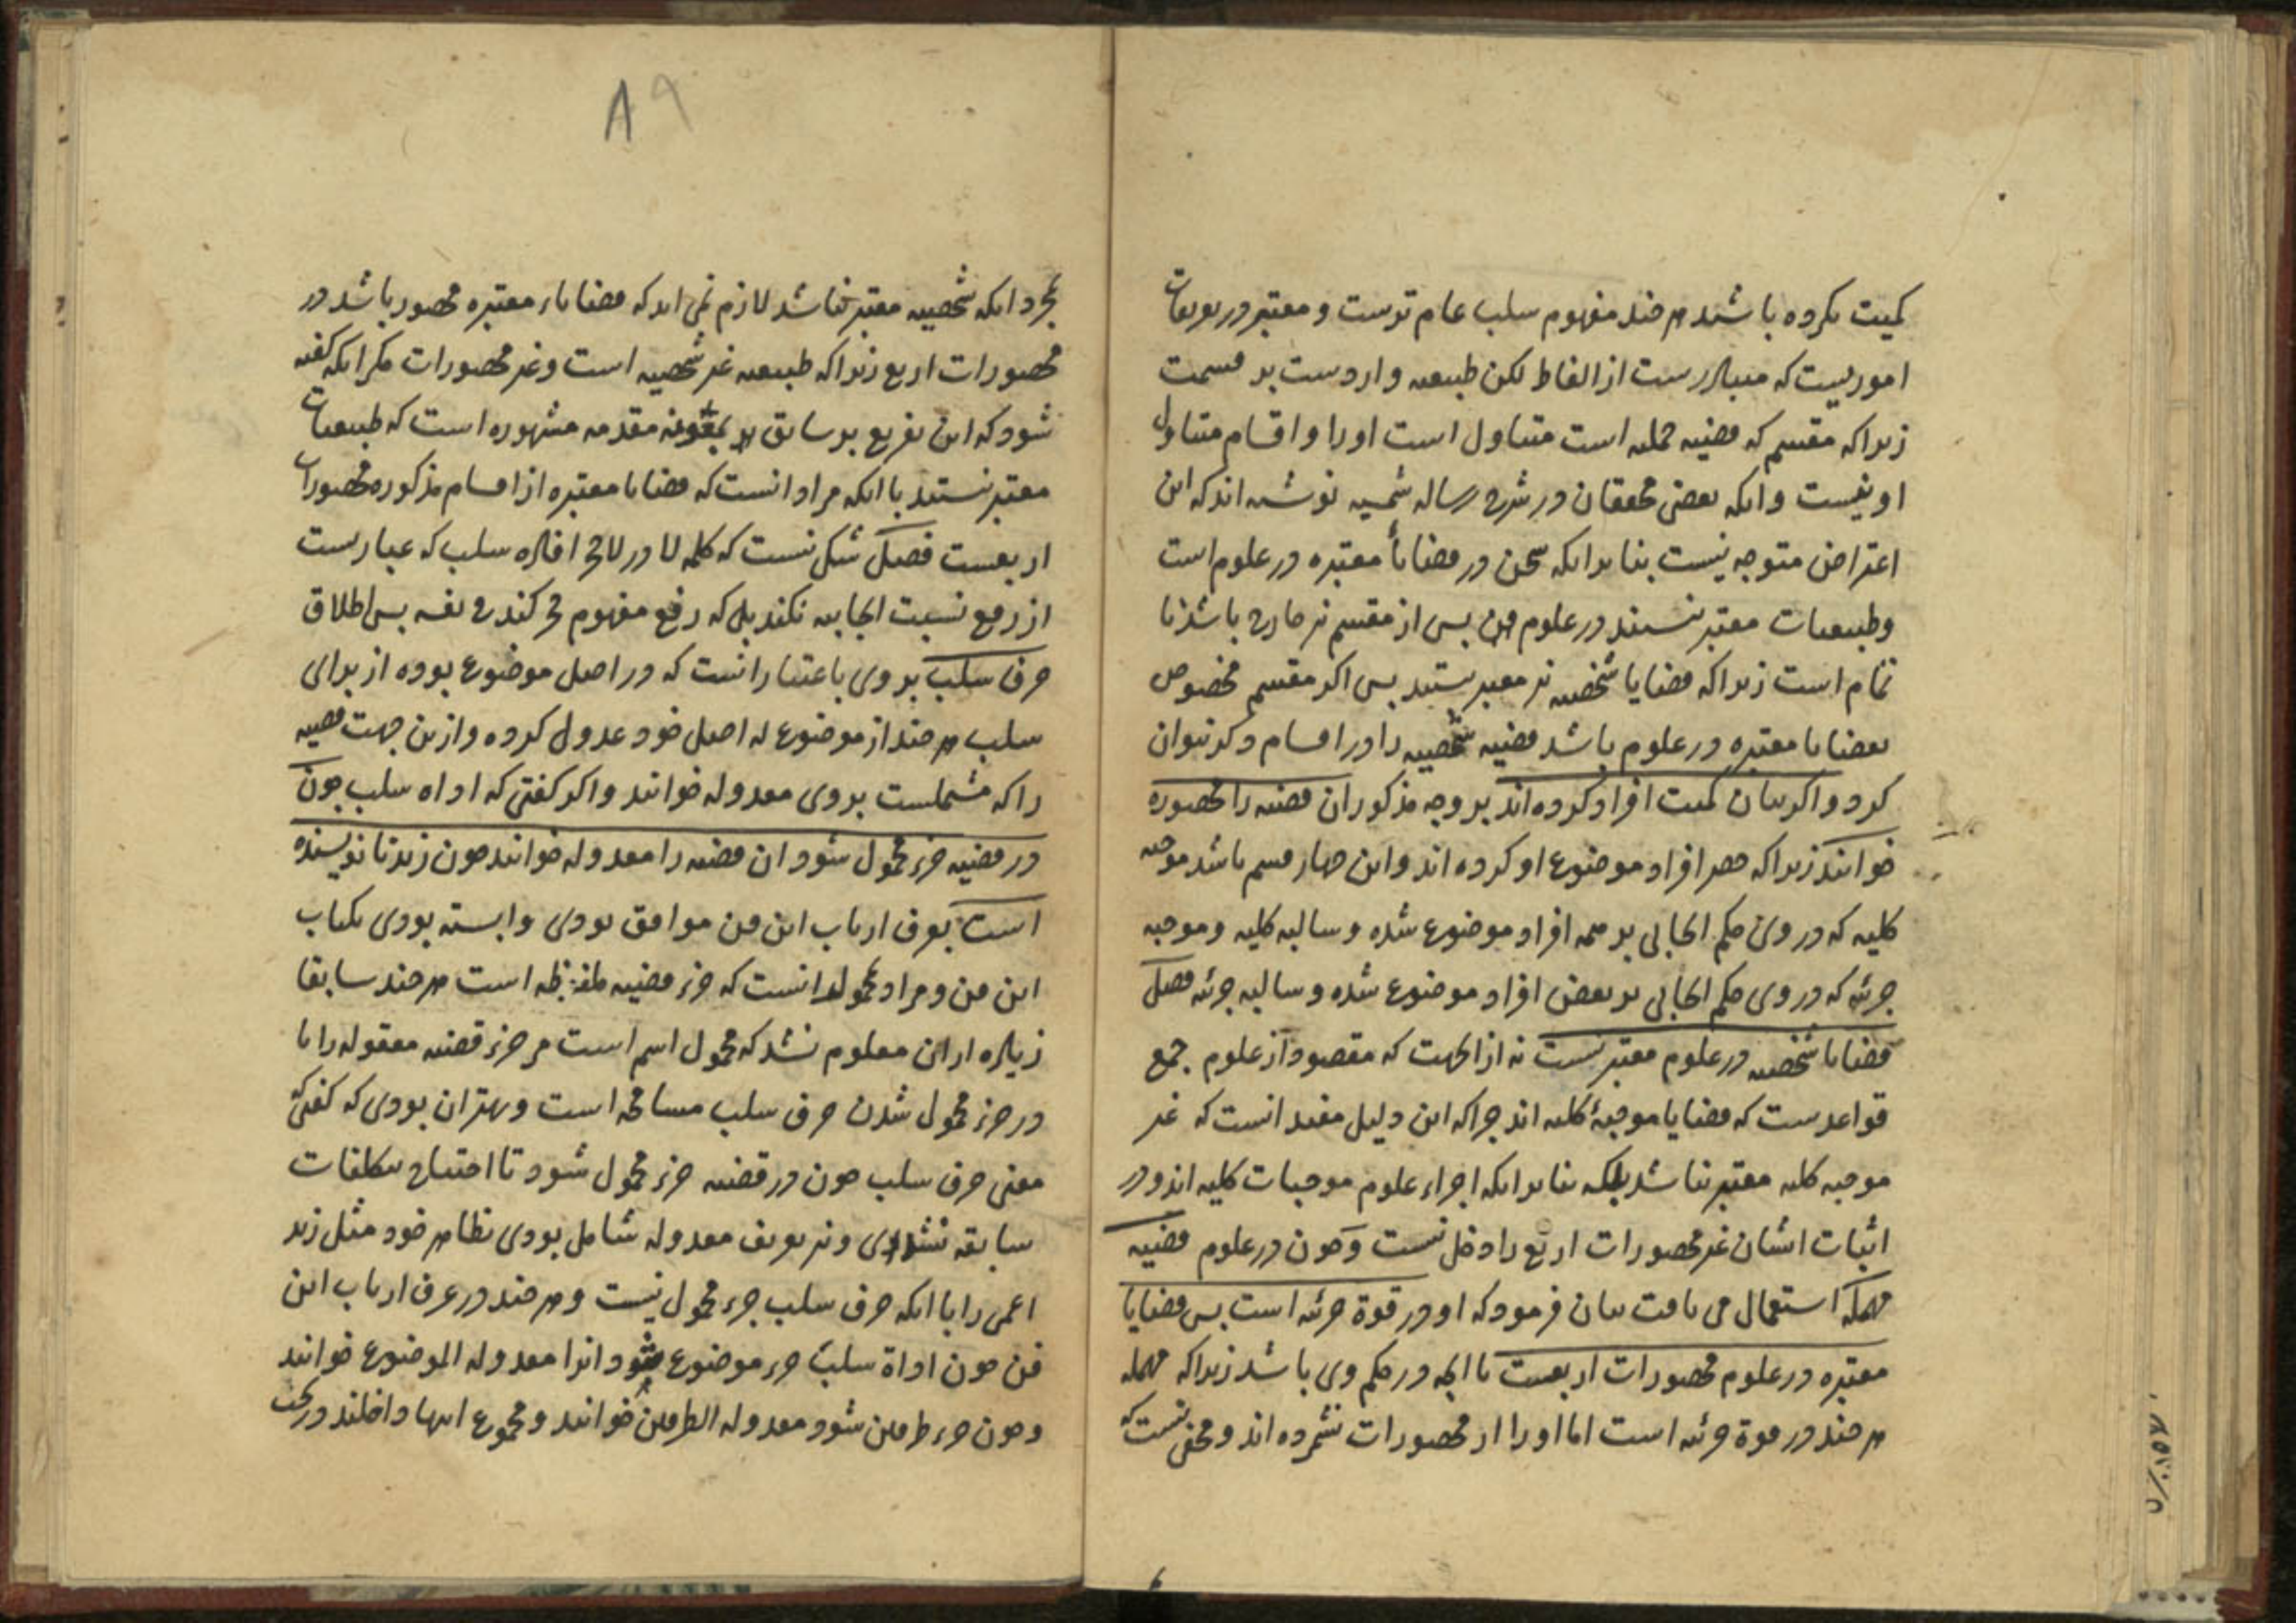 کمیت نکرده باشند هر چند مفهوم سلب عام ترست و معتبر در تعریفات
امور یست که متبادرست از الفاظ لکن طبیعیه واردست بر قسمت
زیرا که مقسم که قضیه حملیه است متناول است او را و اقسام متناول
او نیست و انکه بعضی محققان در شرح رساله شمسیه نوشته اند که این
اعتراض متوجه نیست بنا برانکه سخن در قضایاء معتبره در علوم است
و طبیعیات معتبر نیستند در علوم پس از مقسم نیز خارج باشد نا
تمام است زیرا که قضایا شخصیه نیز معتبر نیستند پس اکر مقسم مخصوص
بقضایا معتبره در علوم باشد قضیه شخصیه را در اقسام ذکر نتوان
کرد و اکر بیان کمیت افراد کرده اند بر وجه مذکور ان قضیه را محصوره
خوانند زیرا که حصر افراد موضوع او کرده اند و این چهار قسم باشد موجبه
کلیه که در وی حکم ایجابی بر همه افراد موضوع شده و سالبه کلیه و موجبه
جزئیه که در وی حکم ایجابی بر بعض افراد موضوع شده و سالبه جزئیه فصل
قضایا شخصیه در علوم معتبر نیست نه از انجهت که مقصود از علوم جمع
قواعدست که قضایا موجبهٔ کلیه اند چرا که این دلیل مفید انست که غیر
موجبه کلیه معتبر نباشد بلکه بنا برانکه اجزاء علوم موجبات کلیه اند و در
اثبات ایشان غیر محصورات اربع را دخل نیست و چون در علوم قضیه
مهمله استعمال می یافت بیان فرمود که او در قوة جزئیه است پس قضایا
معتبره در علوم محصورات اربعست با انچه در حکم وی باشد زیرا که مهمله
هر چند در قوة جزئیه است اما او را از محصورات نشمرده اند و مخفی نیست که
۸۹
بمجرد انکه شخصیه معتبر نباشد لازم نمی اید که قضایاء معتبره محصور باشد در
محصورات اربع زیرا که طبیعیه غیر شخصیه است و غیر محصورات مکر انکه کفته
شود که این تفریع بر سابق بمعونه مقدمه مشهوره است که طبیعیات
معتبر نیستند با انکه مراد انست که قضایا معتبره از اقسام مذکوره محصورات
اربعست فصل شکی نیست که کلمه لا در لاحجر افاده سلب که عبارتست
از رفع نسبت ایجابیه نکند بلکه رفع مفهوم حجر کند فی نفسه پس اطلاق
حرف سلب بر وی باعتبار انست که در اصل موضوع بوده از برای
سلب هر چند از موضوع له اصلی خود عدول کرده و ازین جهت قضیه
را که مشتملست بر وی معدوله خوانند و اکر کفتی که اداه سلب چون
در قضیه جزء محمول شود ان قضیه را معدوله خوانند چون زید نا نویسنده
است بعرف ارباب این فن موافق بودی و ابسته بودی بکتاب
این فن و مراد بمحمول انست که جزء قضیه ملفوظه است هر چند سابقا
زیاده از این معلوم نشد که محمول اسم است مر جزء قضیه معقوله را با
در جزء محمول شدن حرف سلب مسامحه است و بهتر ان بودی که کفتی که
معنی حرف سلب چون در قضیه جزء محمول شود تا احتیاج بتکلفات
سابقه نشدی و نیز تعریف معدوله شامل بودی بظاهر خود مثل زید
اعمی را با انکه حرف سلب جزء محمول نیست و هر چند در عرف ارباب این
فن چون اداة سلب جزء موضوع شود انرا معدولة الموضوع خوانند
و چون جزء طرفین شود معدولة الطرفین خوانند و مجموع اینها داخلند در تحت